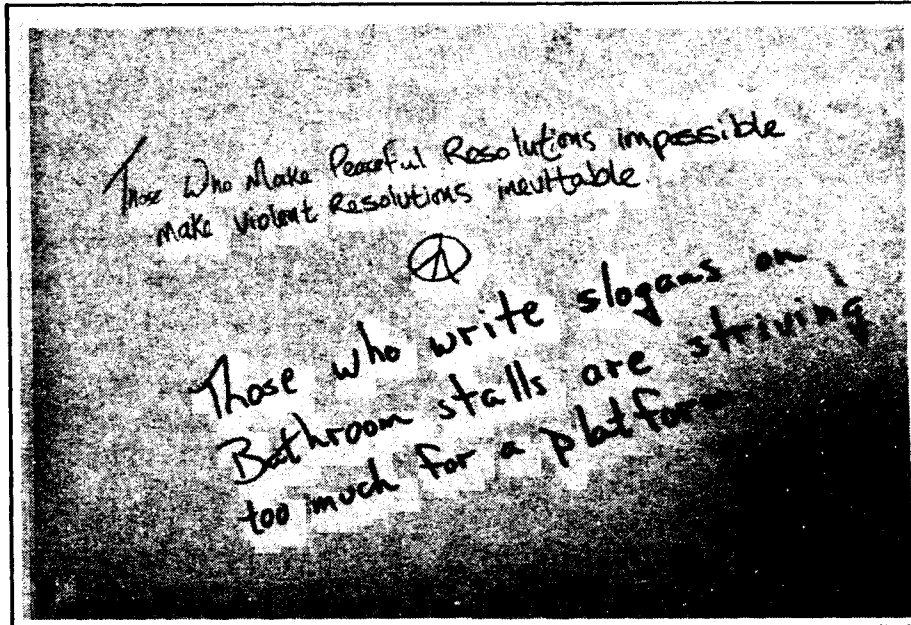 Those Who Make Peaceful Resolutions impossible
make violent Resolutions inevitable.
Those who write slogans on
Bathroom stalls are striving
too much for a platform